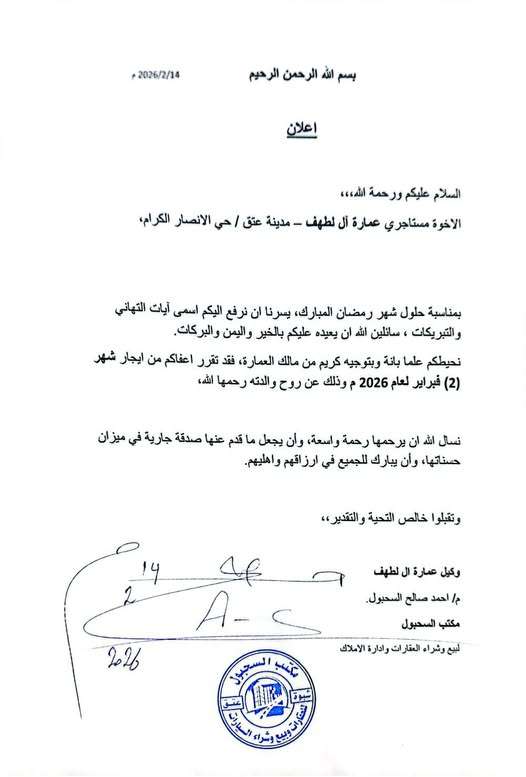 بسم الله الرحمن الرحيم
2026/2/14 م
اعلان
السلام عليكم ورحمة الله،،،،
الاخوة مستاجري عمارة آل لطهف – مدينة عتق / حي الانصار الكرام،
بمناسبة حلول شهر رمضان المبارك، يسرنا ان نرفع اليكم اسمى آيات التهاني
والتبريكات ، سائلين الله ان يعيده عليكم بالخير واليمن والبركات.
نحيطكم علما بانة وبتوجيه كريم من مالك العمارة، فقد تقرر اعفاكم من ايجار شهر
(2) فبراير لعام 2026 م وذلك عن روح والدته رحمها الله،
نسال الله ان يرحمها رحمة واسعة، وأن يجعل ما قدم عنها صدقة جارية في ميزان
حسناتها، وأن يبارك للجميع في ارزاقهم واهليهم.
وتقبلوا خالص التحية والتقدير،،
وكيل عمارة ال لطهف
م/ احمد صالح السحبول.
مكتب السحبول
لبيع وشراء العقارات وادارة الاملاك
14
2
2026
مكتب السحبول
شبوة
عتق
للعقارات وبيع وشراء السيارات